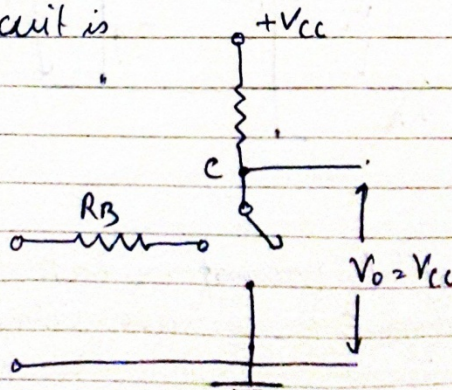 cuit is
+VCC
C
RB
V0 = VCC